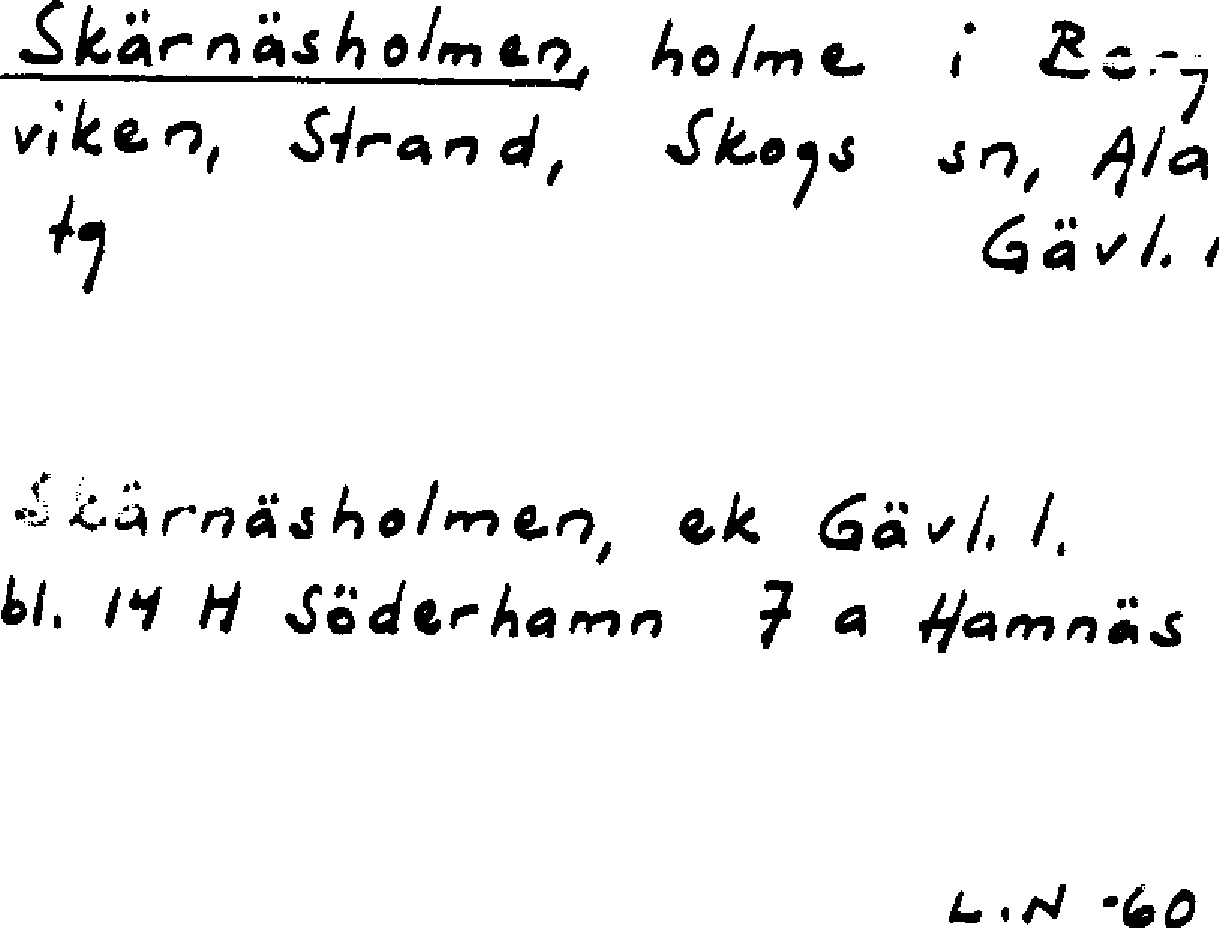 Skärnäsholmen, holme i Berg
viken, Strand, Skogs sn, Ala
tg Gävl. l
Skärnäsholmen, ek Gävl. l.
bl. 14 H Söderhamn 7 a Hamnäs
L.N -60